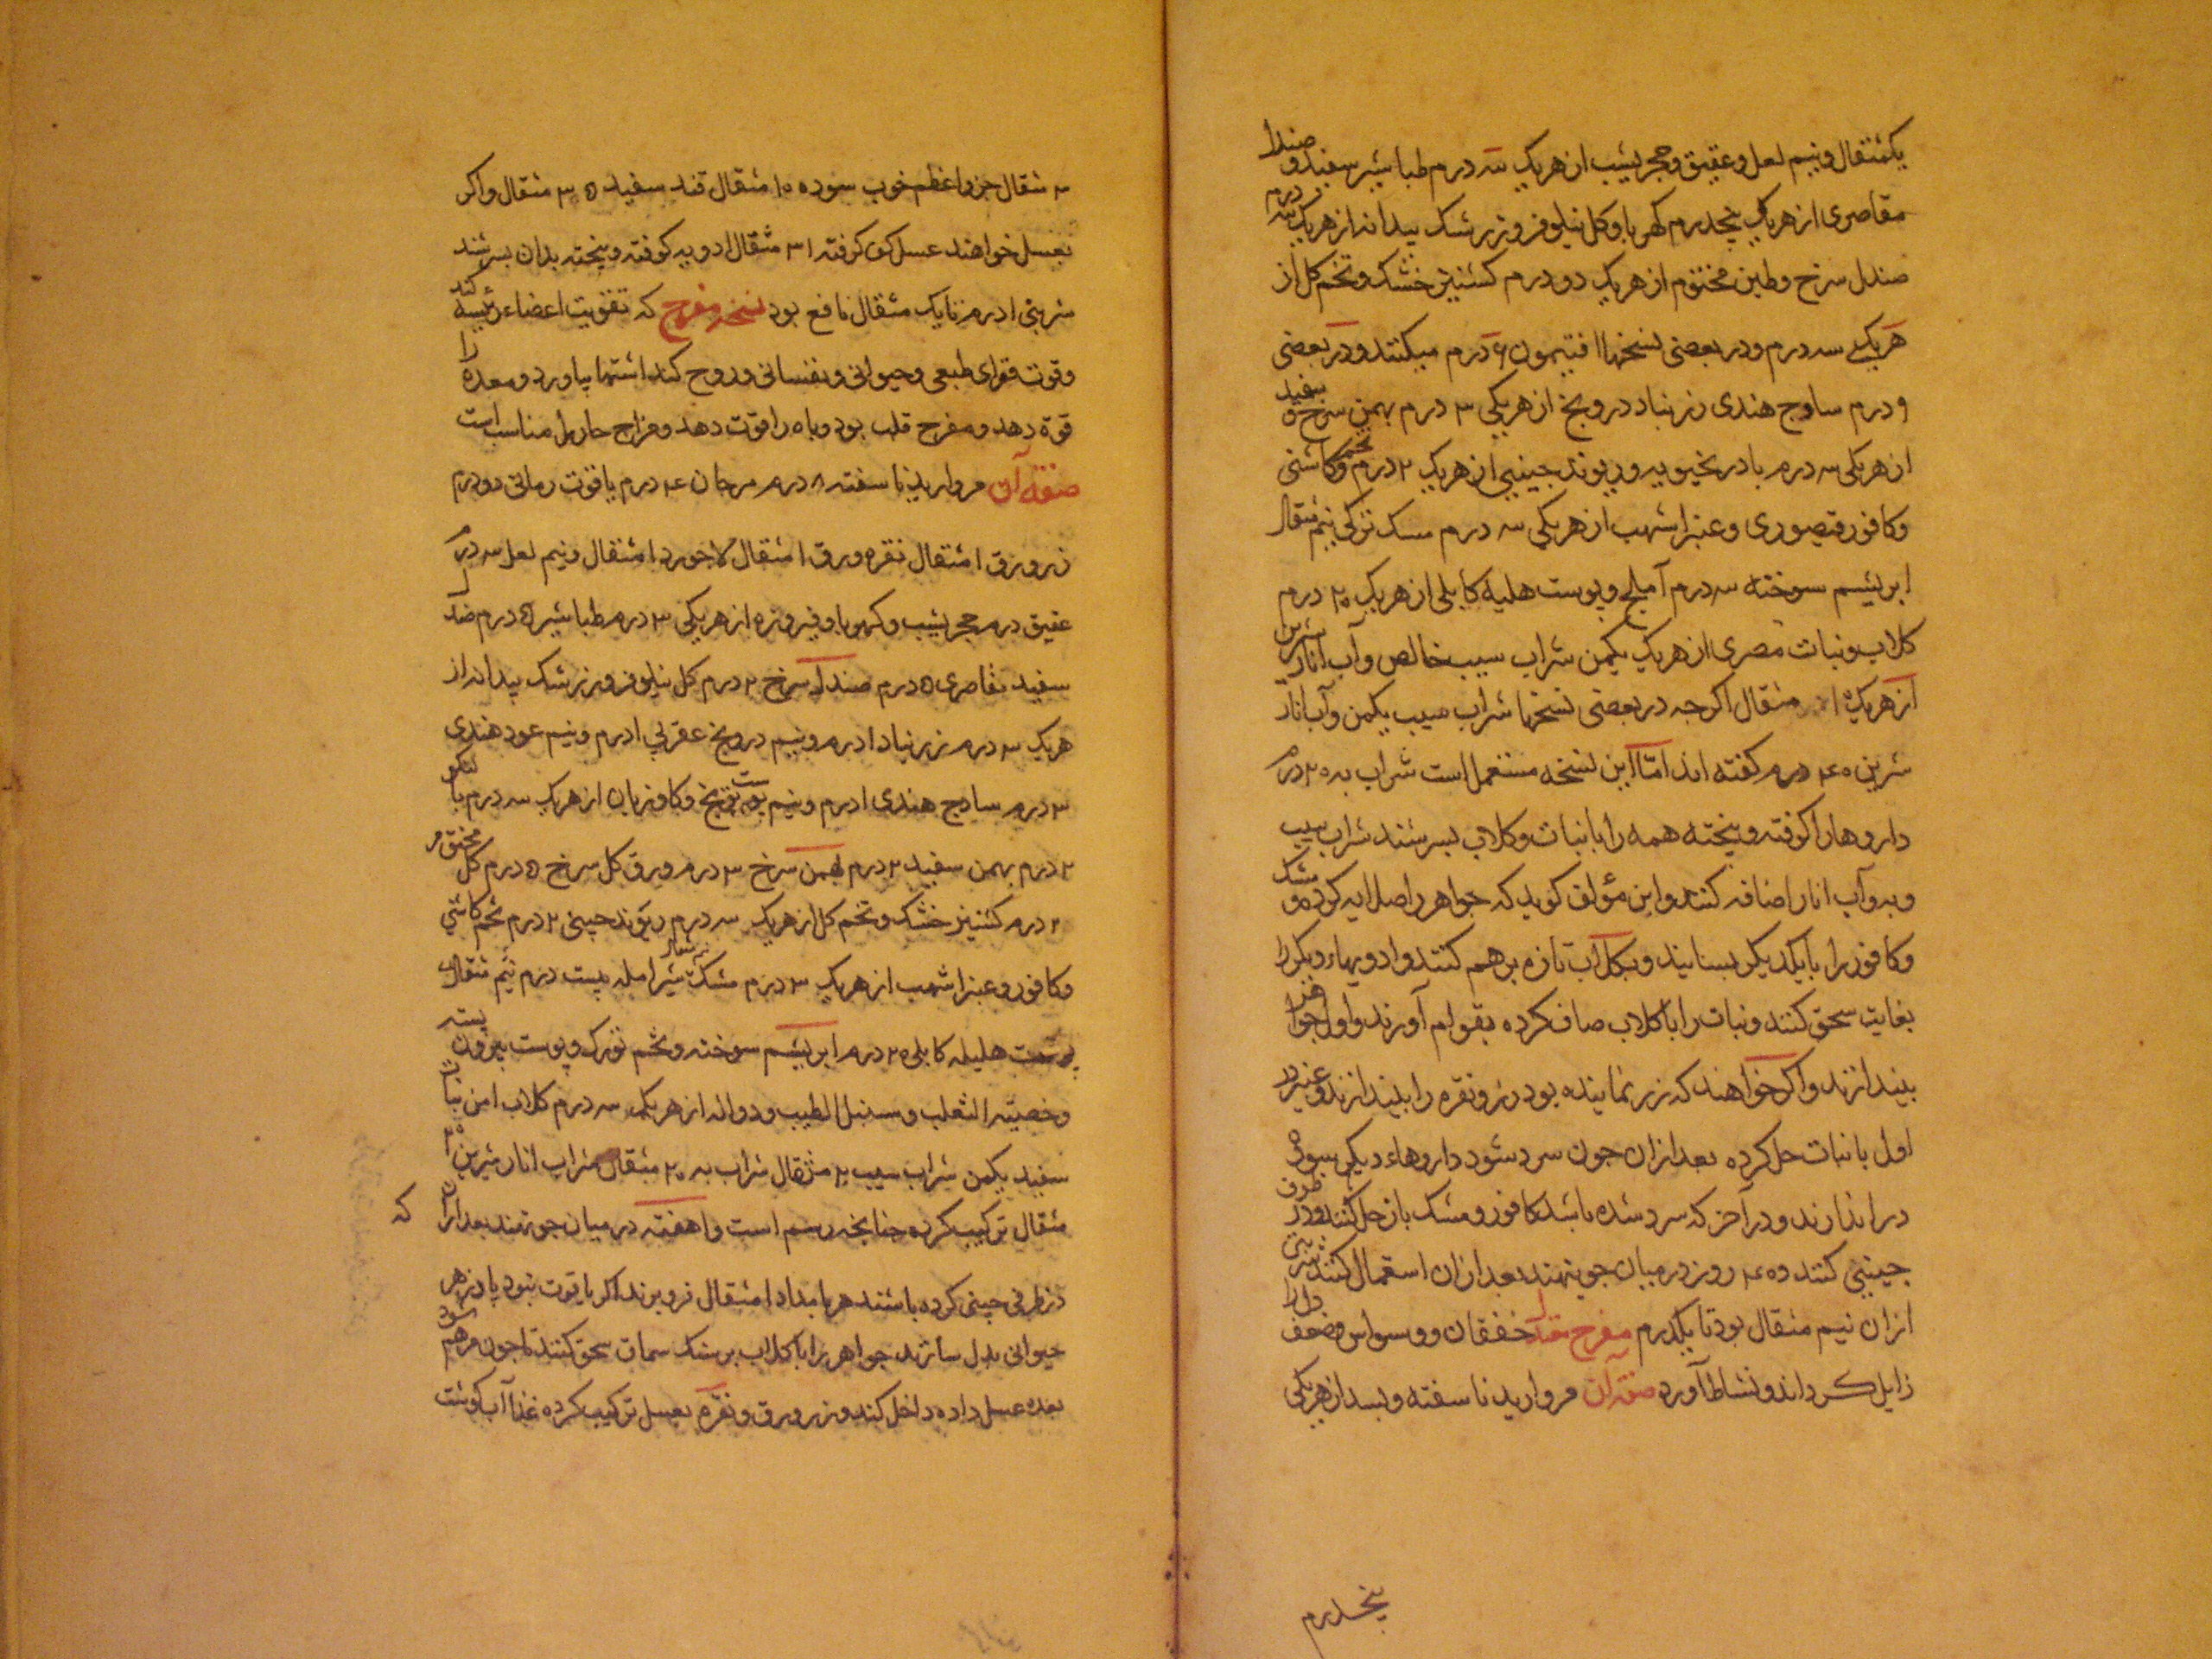 یکمثقال ونیم لعل و عقیق و حجر یشب از هریک سه درم طباشیر سفید و صندل
مقاصری از هریک پنجدرم کهربا و کل نیلوفر و زرشک بیدانه از هریک سه درم
صندل سرخ و طین مختوم از هریک دو درم کشنیز خشک و تخم کل از
هریک سه درم و در بعضی نسخها افتیمون ۶ درم میکنند و در بعضی
و درم ساوج هندی زرنباد درونج از هریکی ۳ درم بهمن سرخ و سفید
از هریکی سه درم بادرنجبویه و ریوند جینی از هریک ۲ درم و تخم کاشنی
و کافور قیصوری و عنبر اشهب از هریکی سه درم مسک ترکی نیم مثقال
ابریشم سوخته سه درم آملج و پوست هلیله کابلی از هریک ۲۰ درم
کلاب و نبات مصری از هریک یکمن شراب سیب خالص و آب انار شرین
از هریک مثقال اکرجه در بعضی نسخها شراب سیب یکمن و آب انار
شرین ۴۰ درم کفته اند اما این نسخه مستعمل است شراب به ۲۰ درم
داروها را کوفته و بیخته همه را با نبات و کلاب بسرشند شراب سیب
و به و آب انار اضافه کنند و این مؤلف کوید که جواهر را صلایه کرده و مشک
و کافور را با یکدیکر بسایند و بکلاب تازه برهم کنند و ادویهاء دیکر را
بغایت سحق کنند و نبات را با کلاب صاف کرده بقوام آورند و اول جواهر
بیندازند و اکر خواهند که زر نماینده بود زر و نقره را بیندازند و عنبر در
اول با نبات حل کرده بعد از ان جون سرد شود داروهاء دیکر بسوده
در اندازند و در آخر که سرد شده باشد کافور و مشک بان حل کنند و در ظرف
جینی کنند و ۴۰ روز در میان جو نهند بعد از ان استعمال کنند شربتی
از ان نیم مثقال بود تا یکدرم مفرح خفقان و وسواس و ضعف دل را
زایل کرداند و نشاط آورد صفة آن مروارید ناسفته و بسد از هریکی
پنجدرم
۳ مثقال جزو اعظم خوب سوده ۱۰ مثقال قند سفید ۳۵ مثقال و اکر
بعسل خواهند عسل کف کرفته ۳۱ مثقال ادویه کوفته و بیخته بدان بسرشند
شربتی ۱ درم تا یک مثقال نافع بود نسخه مفرح که تقویت اعضاء رئیسه کند
و قوت قوای طبعی و حیوانی و نفسانی و روح کند اشتها بیاورد و معده را
قوة دهد و مفرح قلب بود و باه را قوت دهد و مزاج حار را مناسب است
صفة آن مروارید ناسفته ۸ درم مرجان ۴ درم یاقوت رمانی دو درم
زر ورق ۱ مثقال نقره ورق ۱ مثقال لاجورد ۱ مثقال و نیم لعل سه درم
عقیق درم حجر یشب و کهربا و فیروزه از هریکی ۳ درم طباشیر ۵ درم صندل
سفید مقاصری ۵ درم صندل سرخ ۲ درم کل نیلوفر و زرشک بیدانه از
هریک ۳ درم زرنباد ۱ درم و نیم درونج عقربی ۱ درم و نیم عود هندی
۳ درم سادج هندی ۱ درم و نیم پوست ترنج و کاوزبان از هریک سه درم
۲ درم بهمن سفید ۲ درم بهمن سرخ ۳ درم ورق کل سرخ ۵ درم کل مختوم
۲ درم کشنیز خشک و تخم کل از هریک سه درم ریوند جینی ۲ درم تخم کاشنی
و کافور و عنبر اشهب از هریک ۳ درم مشک شیر امله بیست درم نیم مثقال
پوست هلیله کابلی ۲۵ درم ابریشم سوخته و تخم تورک و پوست بیرون پسته
و خصیة الثعلب و سنبل الطیب و دوانه از هریک سه درم کلاب ۱ من نبات
سفید یکمن شراب سیب ۲ مثقال شراب به ۲۰ مثقال شراب انار شرین
مثقال ترکیب کرده جنانجه رسم است و ۱ هفته در میان جو نهند بعد از ان که
در ظرفی جینی کرده باشند هر بامداد ۱ مثقال فرو برند اکر یاقوت نبود پادزهر
حیوانی بدل سازند جواهر را با کلاب بر سنک سماق سحق کنند تا جون مرهم شود
بعده عسل داده داخل کند و زر ورق و نقره بعسل ترکیب کرده غذا آب کوشت